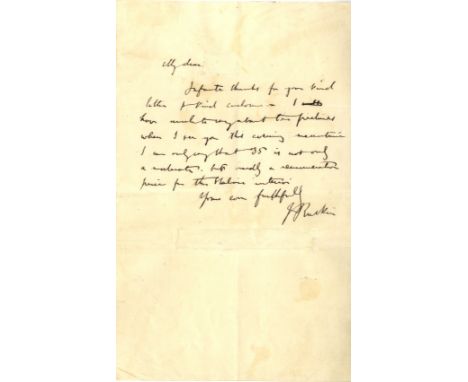 My dear
Infinite thanks for your kind
letter & kind enclosure - I
have much to say about the
when I see you this coming
I am only say that 35 is not only
a moderate, but really a
price for the
Yours ever faithfully
J Ruskin